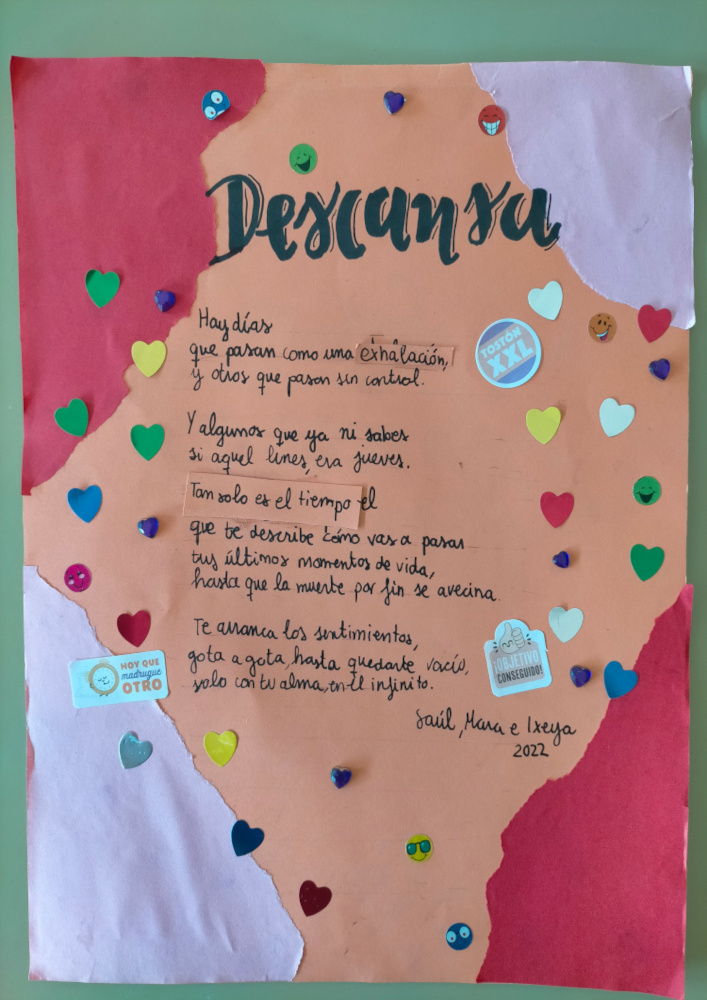 Descansa
Hay días
que pasan como una exhalación,
y otros que pasan sin control.
TOSTÓN
XXL
Y algunos que ya ni sabes
si aquel lunes, era jueves.
Tan solo es el tiempo el
que te describe cómo vas a pasar
tus últimos momentos de vida,
hasta que la muerte por fin se avecina.
Te arranca los sentimientos,
gota a gota, hasta quedarte vacío,
solo con tu alma, en el infinito.
¡OBJETIVO
CONSEGUIDO!
HOY QUE
madrugue
OTRO
Saúl, Mara e Ixeya
2022